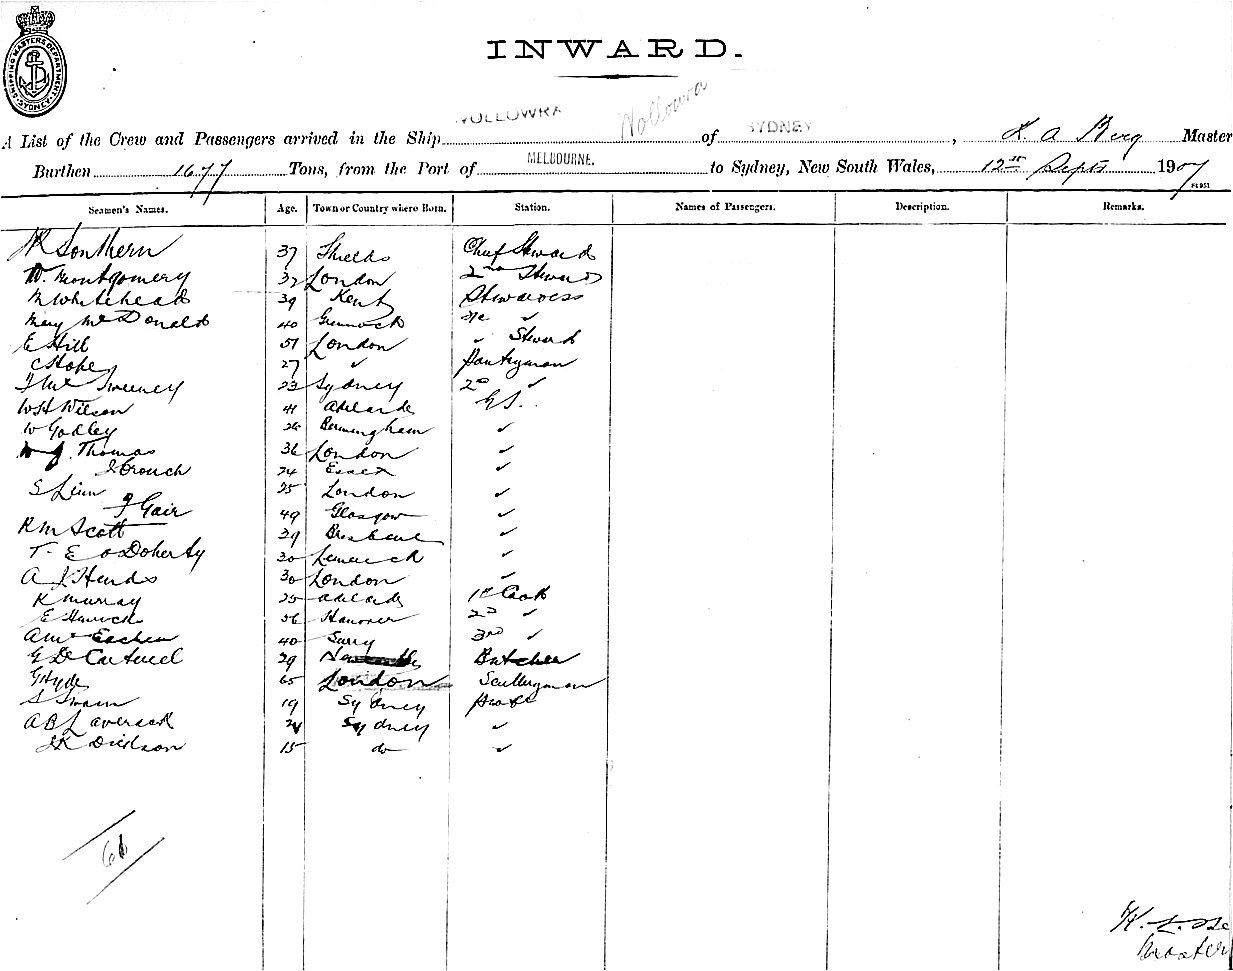 SHIPPING MASTERS DEPARTMENT SYDNEY
INWARD.
WOLLOWRA Wollowra SYDNEY
A List of the Crew and Passengers arrived in the Ship of , K. A Berg Master
MELBOURNE.
Burthen 1677 Tons, from the Port of to Sydney, New South Wales, 12th Septr 1907
Seamen's Names. Age. Town or Country where Born. Station. Names of Passengers. Description. Remarks.
Southern 37 Shields Chief Steward
W. Montgomery 32 London 2nd Steward
M Whitehead 39 Kent Stewardess
Mary McDonald 40 Greenock
E Hill 51 London " Steward
C Stokes 27 " Pantryman
T McSweeney 23 Sydney 2nd "
W H Wilson 41 Adelaide G S.
W Godley 26 Birmingham "
J. Thomas 36 London "
J Crouch 24 Essex "
S Linn 25 London "
J Gair 49 Glasgow "
R M Scott 39 Brisbane "
T E O Doherty 30 Limerick "
A J Hinds 30 London "
K Murray 25 Adelaide 1st Cook
E 56 Hanover 2nd "
A McEachen 40 Surry 3rd "
G De 29 Butcher
G Hyde 65 London Scullryman
S Swain 19 Sydney
A B Laverack 24 Sydney "
J K Dickson 15 do "
61
Master